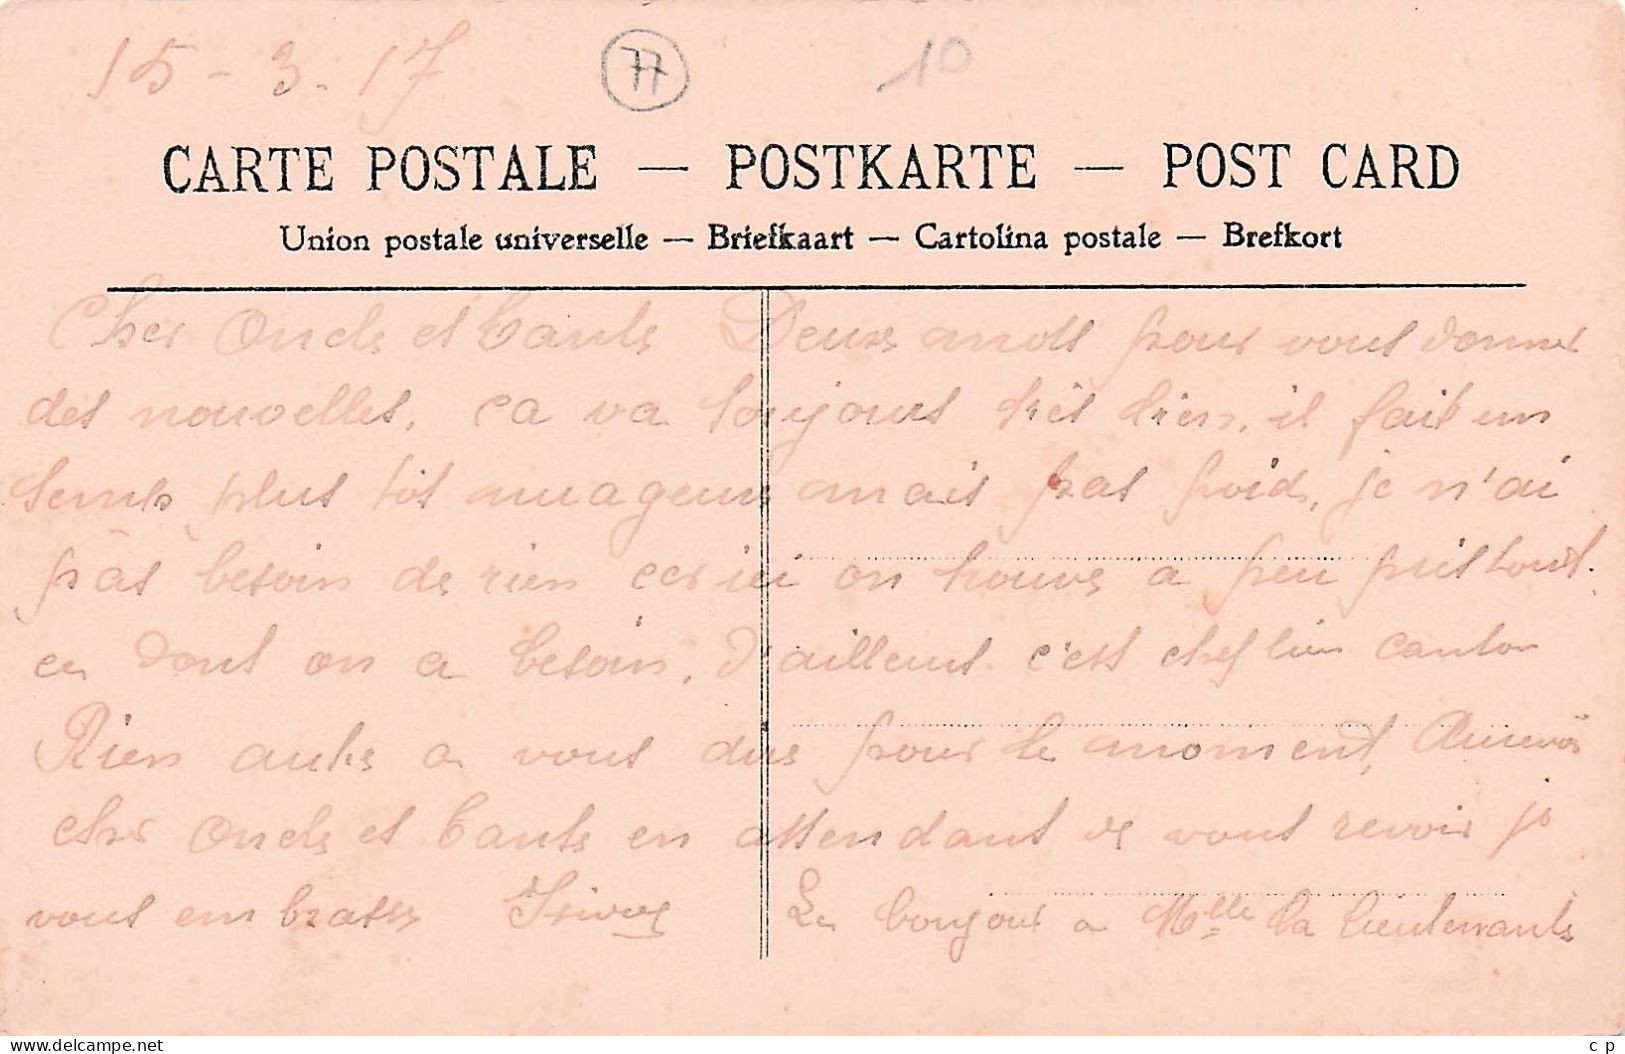 15-3.17
77
10
CARTE POSTALE — POSTKARTE — POST CARD
Union postale universelle — Briefkaart — Cartolina postale — Brefkort
Cher Oncle et tante Deux mots pour vous donner
des nouvelles, ça va toujours très bien, il fait un
temps plus tôt nuageux mais pas froid, je n'ai
pas besoin de rien car ici on trouve a peu près tout.
ce dont on a besoin, d'ailleurs c'est chef lieu canton
Rien autre a vous dire pour le moment, Aurevoir
cher Oncle et tante en attendant de vous revoir je
vous embrasse
Le bonjour a Mlle la lieutenante
delcampe.net
c p